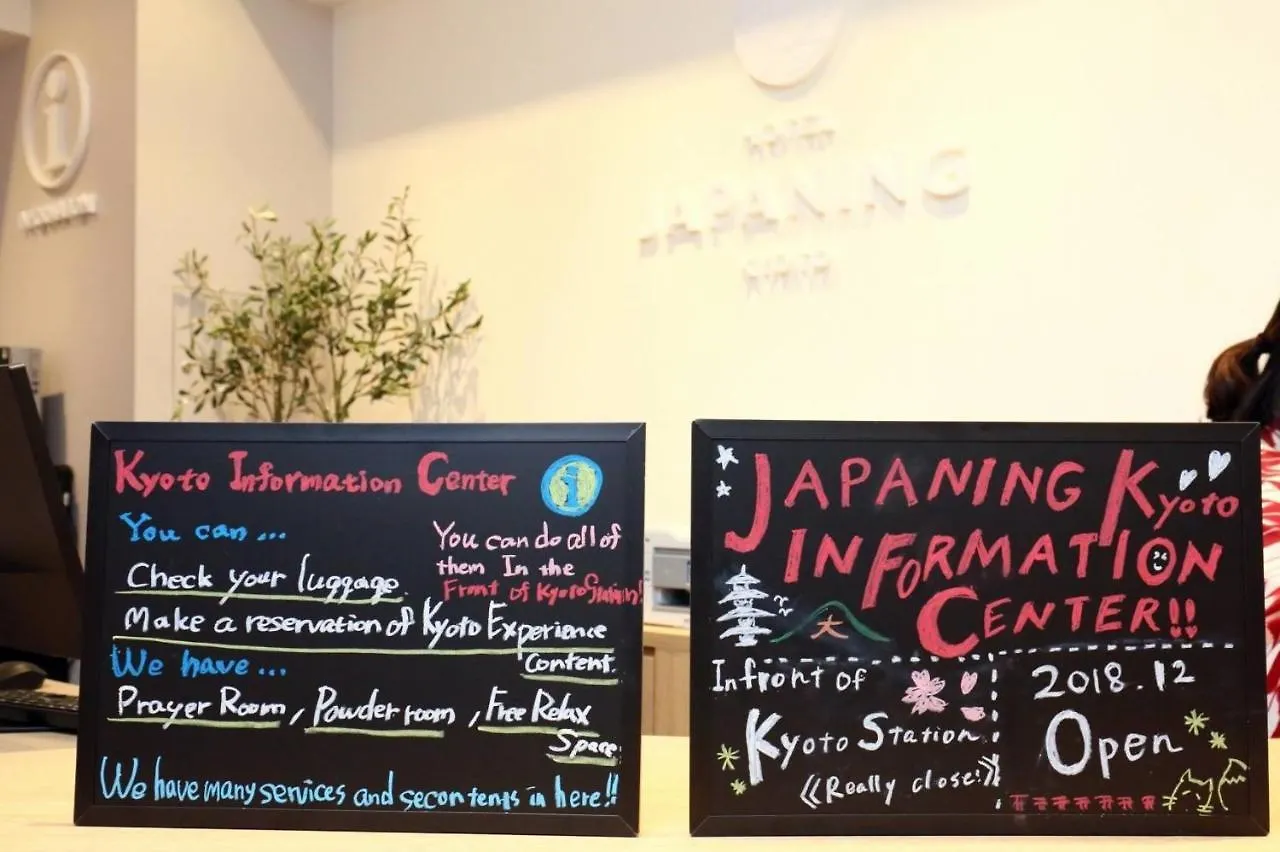 KYOTO
JAPANING
Kyoto Information Center
i
You can ...
You can do all of
them In the
Front of Kyoto Station!
Check your luggage.
Make a reservation of Kyoto Experience
Content.
We have ...
Prayer Room, Powder room, Free Relax
Space
We have many services and secontents in here!!
JAPANING Kyoto
INFORMATION
CENTER!!
大
Infront of
Kyoto Station
《Really close!》
2018.12
Open